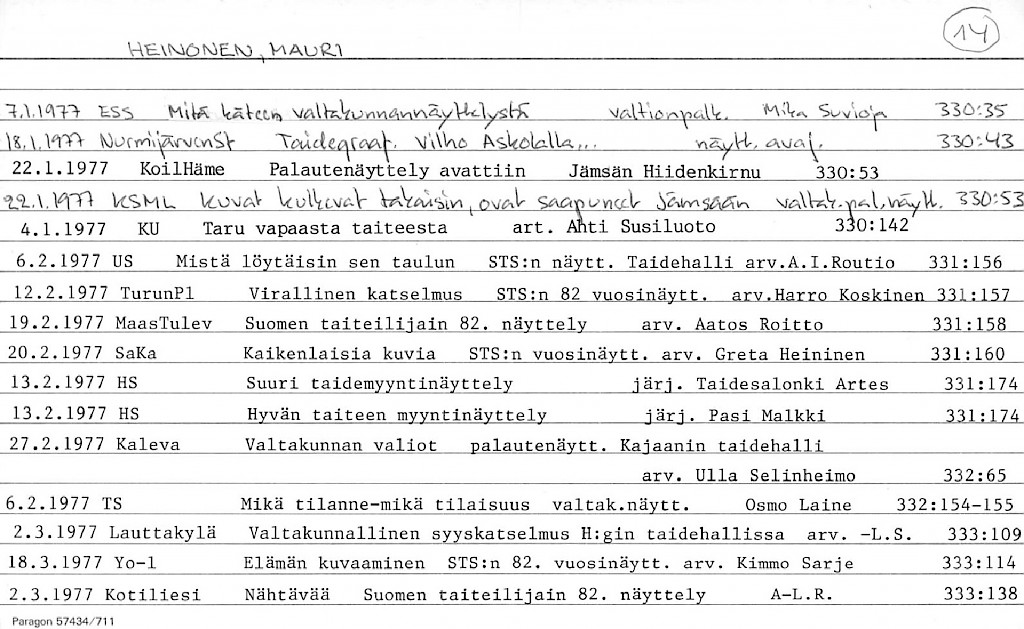 14
HEINONEN, MAURI
7.1.1977 ESS Mitä käteen valtakunnannäyttelystä valtionpalk. Mika Suvioja 330:35
18.1.1977 NurmijärvenSt Taidegraaf. Vilho Askolalla... näytt. avaj. 330:43
22.1.1977 KoilHäme Palautenäyttely avattiin Jämsän Hiidenkirnu 330:53
22.1.1977 KSML kuvat kulkevat takaisin, ovat saapuneet Jämsään valtak.pal.näytt. 330:53
4.1.1977 KU Taru vapaasta taiteesta art. Ahti Susiluoto 330:142
6.2.1977 US Mistä löytäisin sen taulun STS:n näytt. Taidehalli arv.A.I.Routio 331:156
12.2.1977 TurunPl Virallinen katselmus STS:n 82 vuosinäytt. arv.Harro Koskinen 331:157
19.2.1977 MaasTulev Suomen taiteilijain 82. näyttely arv. Aatos Roitto 331:158
20.2.1977 SaKa Kaikenlaisia kuvia STS:n vuosinäytt. arv. Greta Heininen 331:160
13.2.1977 HS Suuri taidemyyntinäyttely järj. Taidesalonki Artes 331:174
13.2.1977 HS Hyvän taiteen myyntinäyttely järj. Pasi Malkki 331:174
27.2.1977 Kaleva Valtakunnan valiot palautenäytt. Kajaanin taidehalli
arv. Ulla Selinheimo 332:65
6.2.1977 TS Mikä tilanne-mikä tilaisuus valtak.näytt. Osmo Laine 332:154-155
2.3.1977 Lauttakylä Valtakunnallinen syyskatselmus H:gin taidehallissa arv. -L.S. 333:109
18.3.1977 Yo-l Elämän kuvaaminen STS:n 82. vuosinäytt. arv. Kimmo Sarje 333:114
2.3.1977 Kotiliesi Nähtävää Suomen taiteilijain 82. näyttely A-L.R. 333:138
Paragon 57434/711